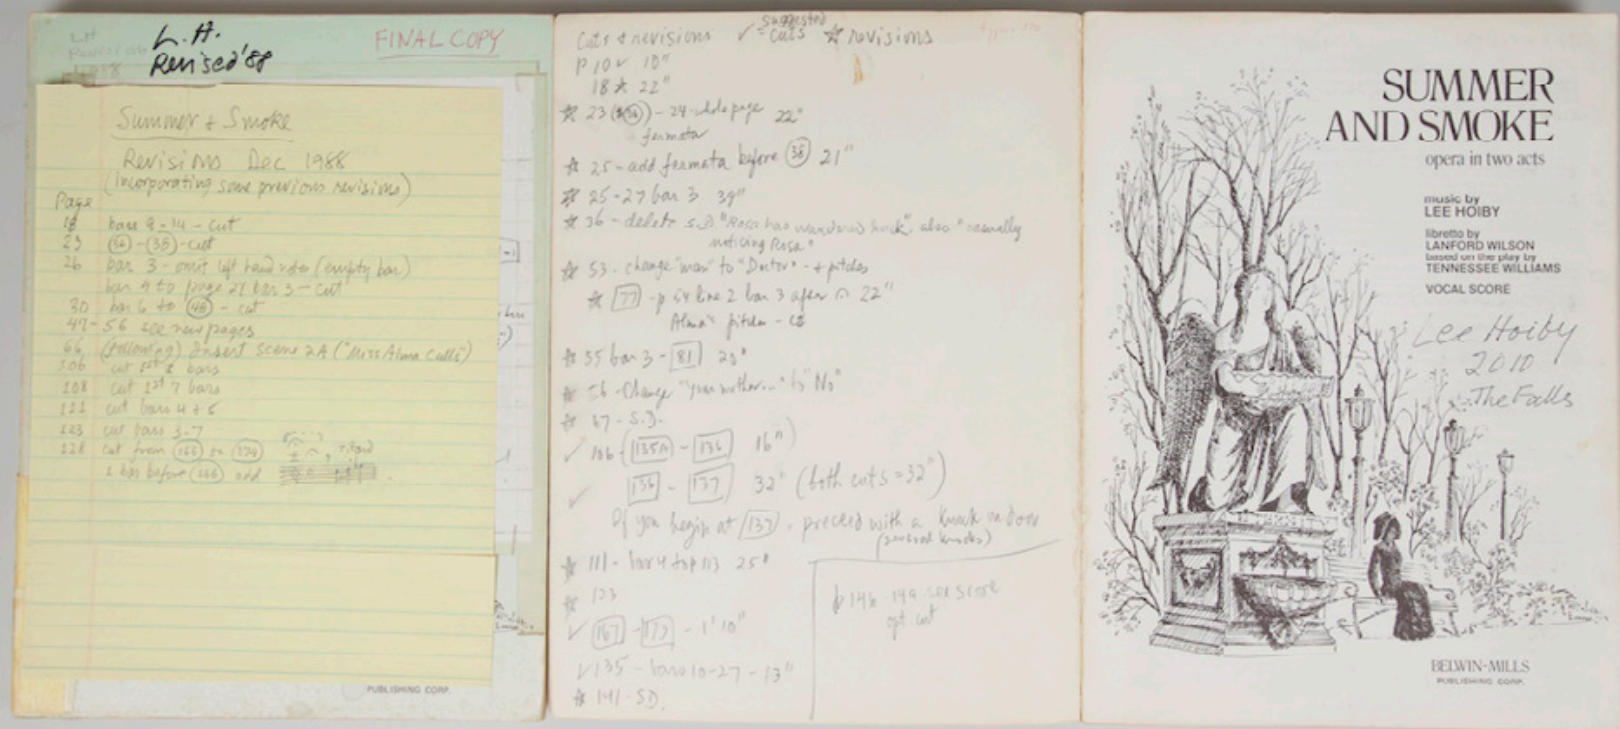 L.H.
Revised '88
FINAL COPY
Summer + Smoke
Revisions Dec 1988
(incorporating some previous revisions)
Page
18 bars 9-14 - cut
23 - cut
26 bar 3 - omit left hand notes (empty bar)
bar 9 to page 27 bar 3 - cut
30 bar 6 to - cut
47-56 see new pages
66 (following) Insert Scene 2A ("Miss Alma Calls")
106 cut 1st bars
108 cut 1st 7 bars
111 cut bars 4 + 5
123 cut bars 3-7
128 cut from to
1 bar before add
PUBLISHING CORP.
suggested
Cuts & revisions ✓ = cuts ☆ revisions
p 10 ✓ 10"
18 ☆ 22"
☆ 23 - 24 - whole page 22"
fermata
☆ 25 - add fermata before 21"
☆ 25-27 bar 3 39"
☆ 36 - delete S.D. "Rosa has wandered back" also "casually
noticing Rosa"
☆ 53 - change "man" to "Doctor" - + pitches
☆ 77 - p 54 line 2 bar 3 after 22"
Alma's pitch -
☆ 55 bar 3 - 81 20"
☆ 56 - Change "your mother..." to "No"
☆ 67 - S.D.
✓ 106 - 136 16"
✓ 136 - 137 32" (both cuts = 32")
If you begin at 137, preceed with a knock on door
(several knocks)
☆ 111 - bar 4 to p 113 25"
☆ 123
✓ 167 - 173 - 1'10"
✓ 135 - bars 10-27 - 13"
☆ 141 - S.D.
p 148-149 see score
opt cut
SUMMER
AND SMOKE
opera in two acts
music by
LEE HOIBY
libretto by
LANFORD WILSON
based on the play by
TENNESSEE WILLIAMS
VOCAL SCORE
Lee Hoiby
2010
The Falls
BELWIN-MILLS
PUBLISHING CORP.